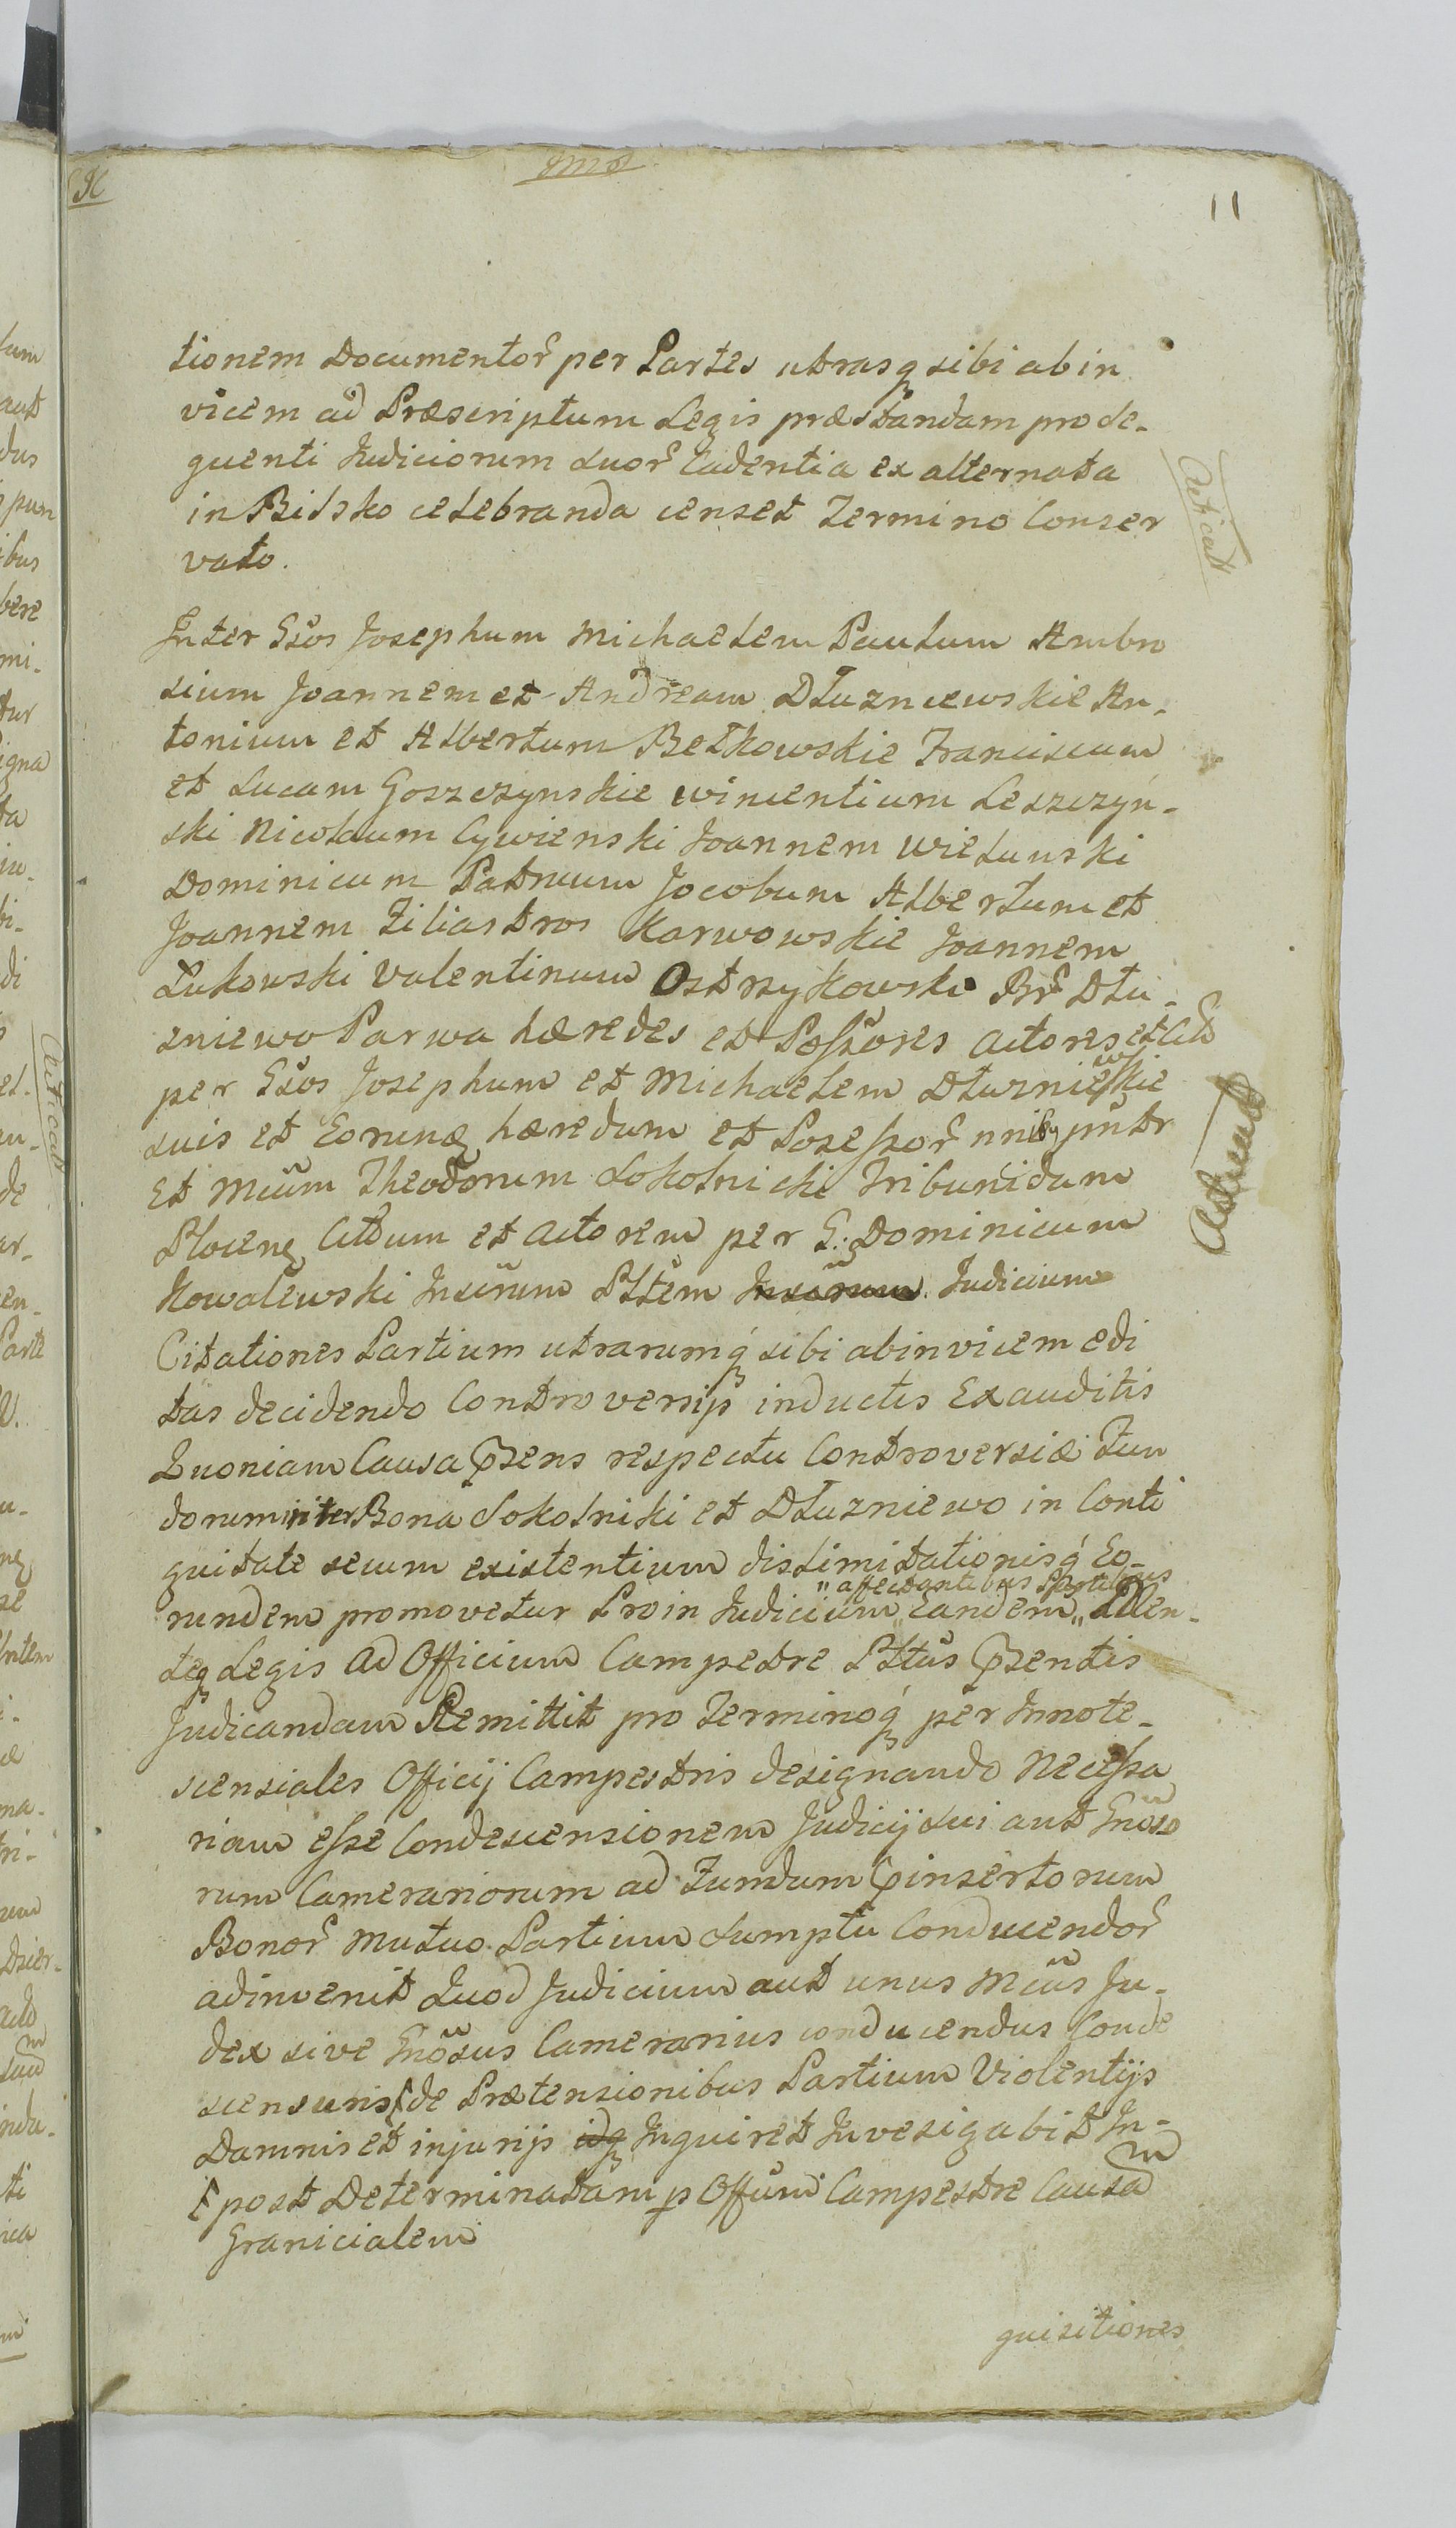 11
tionem Documentor̃ per Partes utrasq sibi abin
vicem ad Præscriptum Legis præstandam pro se-
quenti Judiciorum suor̃ Cadentia ex alternata
in Bielsko celebranda censet Termino Conser
vato.
Inter Gsos Josephum Michaelem Paulum Ambro
sium Joannem et Andream Dłuzniewskie An-
tonium et Albertum Betkowskie Franciscum
et Lucam Goszczynskie Wincentium Leszczyn-
ski Nicolaum Cywienski Joannem Wielunski
Dominicum Patruum Jacobum Albertum et
Joannem Filiastros Karwowskie Joannem
Łukowski Valentinum Ostrzykowski Br̃ Dłu-
zniewo Parwa hæredes et Possores Actores et Citt
per Gsos Josephum et Michaelem Dłuzniewskie
suis et Eorumq hæredum et Possessor̃ nnibq
Et Mcum Theodorum Sokolnicki Tribunidam
Plocenq Cittum et Actorem per G: Dominicum
Kowalewski Juratum Pltem Judicium
Citationes Partium utrarumq́ sibi abinvicem edi
tas decidendo Controversijs inductis Exauditis
Quoniam Causa p̃sens respectu Controversiæ Fun
dorum inter Bona Sokolniki et Dłuzniewo in Conti
guitate secum existentium dislimitationisq́ Eo-
" affectantibus Partibus
rundem promovetur Proin Judicium "Eandem" Men-
teq Legis Ad Officium Campestre Plttus p̃sentis
Judicandam Remittit pro Terminoq́ per Innote-
scensiales Officij Campestris designando Necessa
riam esse Condescensionem Judicij sui aut Gnoso
rum Camerariorum ad Fundum p̃insertorum
Bonor̃ Mutuo Partium Sumptu Conducendor̃
adinvenit Quod Judicium aut unus Mcus Ju-
dex sive Gnosus Camerarius conducendus Conde
scensurus ſ de Prætensionibus Partium Violentijs
Damnis et injurijs idq Inquiret Investigabit In-
ſ post Determinatam p Offum Campestre Causam
Granicialem
quisitiones